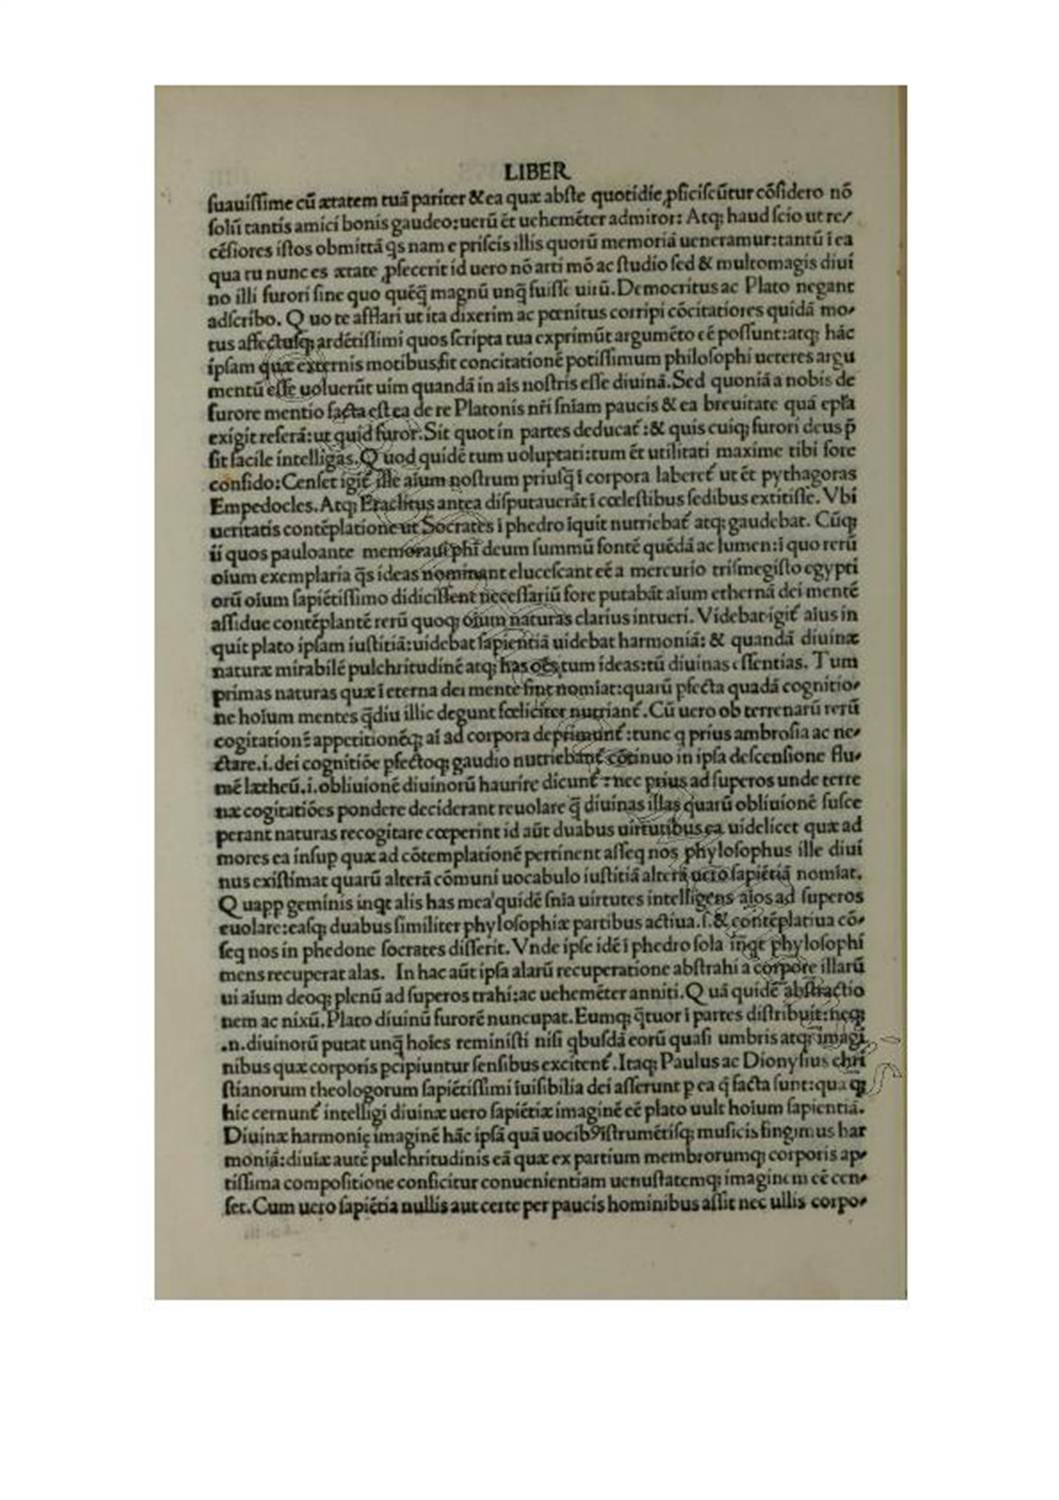 LIBER
suauissime cū ætatem tuā pariter & ea quæ abste quotidie ꝓficiscūtur cōsidero nō
solū tantis amici bonis gaudeo: uerū ēt uehemēter admiror: Atq; haud scio ut re/
cēsiores istos obmittā q̄s nam e priscis illis quorū memoriā ueneramur: tantū ī ea
qua tu nunc es ætate ꝓfecerit id uero nō arti mō ac studio sed & multomagis diui
no illi furori sine quo quēq̄ magnū unq̄ fuisse uirū. Democritus ac Plato negant
adscribo. Quo te afflari ut ita dixerim ac pœnitus corripi cōcitatiores quidā mo/
tus affectusq; ardētissimi quos scripta tua exprimūt argumēto cē possunt: atq; hāc
ipsam quæ externis motibus fit concitationē potissimum philosophi ueteres argu
mentū esse uoluerūt uim quandā in aīs nostris esse diuinā. Sed quoniā a nobis de
furore mentio facta est ea de re Platonis nr̄i sn̄iam paucis & ea breuitate quā epl̄a
exigit referā: ut quid furor. Sit quot in partes deducat̄: & quis cuiq; furori deus p̄
sit facile intelligas. Quod quidē tum uoluptati: tum ēt utilitati maxime tibi fore
confido: Censet igit̄ ille aīum nostrum priusq̄ ī corpora laberet̄ ut ēt pythagoras
Empedocles. Atq; Eraclitus antea disputauerāt ī cœlestibus sedibus extitisse. Vbi
ueritatis contēplatione ut Socrates ī phedro īquit nutriebat̄ atq; gaudebat. Cūq;
ii quos pauloante memoraui phī deum summū fontē quēdā ac lumen: ī quo rerū
oīum exemplaria q̄s ideas nominant elucescant cē a mercurio trismegisto egypti
orū oīum sapiētissimo didicissent necessariū fore putabāt aīum ethernā dei mentē
assidue contēplantē rerū quoq; oīum naturas clarius intueri. Videbat igit̄ aīus in
quit plato ipsam iustitiā: uidebat sapientiā uidebat harmoniā: & quandā diuinæ
naturæ mirabilē pulchritudinē atq; has oēs tum ideas: tū diuinas essentias. Tum
primas naturas quæ ī eterna dei mente sint nomīat: quarū pfecta quadā cognitio/
ne hoīum mentes q̄diu illic degunt fœliciter nutriant̄. Cū uero ob terrenarū rerū
cogitationē appetitionēq; aī ad corpora deprimunt̄: tunc q prius ambrosia ac ne/
ctare .i. dei cognitiōe pfectoq; gaudio nutriebant̄ cōtinuo in ipsa descensione flu/
mē lætheū .i. obliuionē diuinorū haurire dicunt̄: nec prius ad superos unde terre
næ cogitatiōes pondere deciderant reuolare q̄ diuinas illas quarū obliuionē susce
perant naturas recogitare cœperint id aūt duabus uirtutibus ea uidelicet quæ ad
mores ea insup quæ ad cōtemplationē pertinent asseq nos phylosophus ille diui
nus existimat quarū alterā cōmuni uocabulo iustitiā alterā uero sapiētiā nomīat.
Quapp geminis inqt alis has mea quidē sn̄ia uirtutes intelligens aīos ad superos
euolare: easq; duabus similiter phylosophiæ partibus actiua .s. & contēplatiua cō/
seq nos in phedone socrates disserit. Vnde ipse idē ī phedro sola īn̄qt phylosophi
mens recuperat alas. In hac aūt ipsa alarū recuperatione abstrahi a corpore illarū
ui aīum deoq; plenū ad superos trahi: ac uehemēter anniti. Quā quidē abstractio
nem ac nixū. Plato diuinū furorē nuncupat. Eumq; q̄tuor ī partes distribuit: neq;
.n. diuinorū putat unq̄ hoīes reminisci nisi qbusdā eorū quasi umbris atq; imagi
nibus quæ corporis pcipiuntur sensibus excitent̄. Itaq; Paulus ac Dionysius chri
stianorum theologorum sapiētissimi īuisibilia dei asserunt p ea q̄ facta sunt: quæ q;
hic cernunt̄ intelligi diuinæ uero sapiētiæ imaginē cē plato uult hoīum sapientiā.
Diuinæ harmonię imaginē hāc ipsā quā uocibꝰ īstrumētisq; musicis fingimus har
moniā: diuiæ autē pulchritudinis eā quæ ex partium membrorumq; corporis ap/
tissima compositione conficitur conuenientiam uenustatemq; imaginem cē cen/
set. Cum uero sapiētia nullis aut certe per paucis hominibus assit nec ullis corpo/